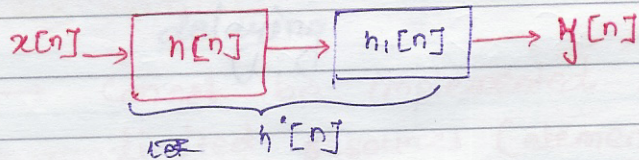 x[n] → h[n] → h₁[n] → y[n]
h'[n]